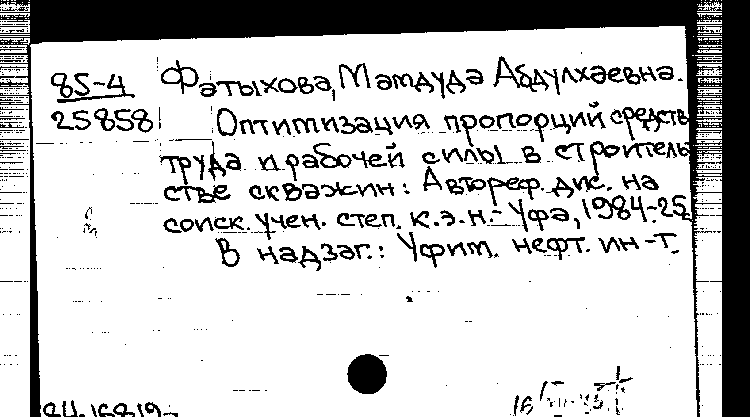 85-4 Фатыхова, Мамдуда Абдулхаевна.
25858 Оптимизация пропорций средств
труда и рабочей силы в строитель
стве скважин: Автореф. дис. на
соиск. учен. степ. к.э.н.- Уфа, 1984-25
В надзаг.: Уфим. нефт. ин-т.
84.16819-